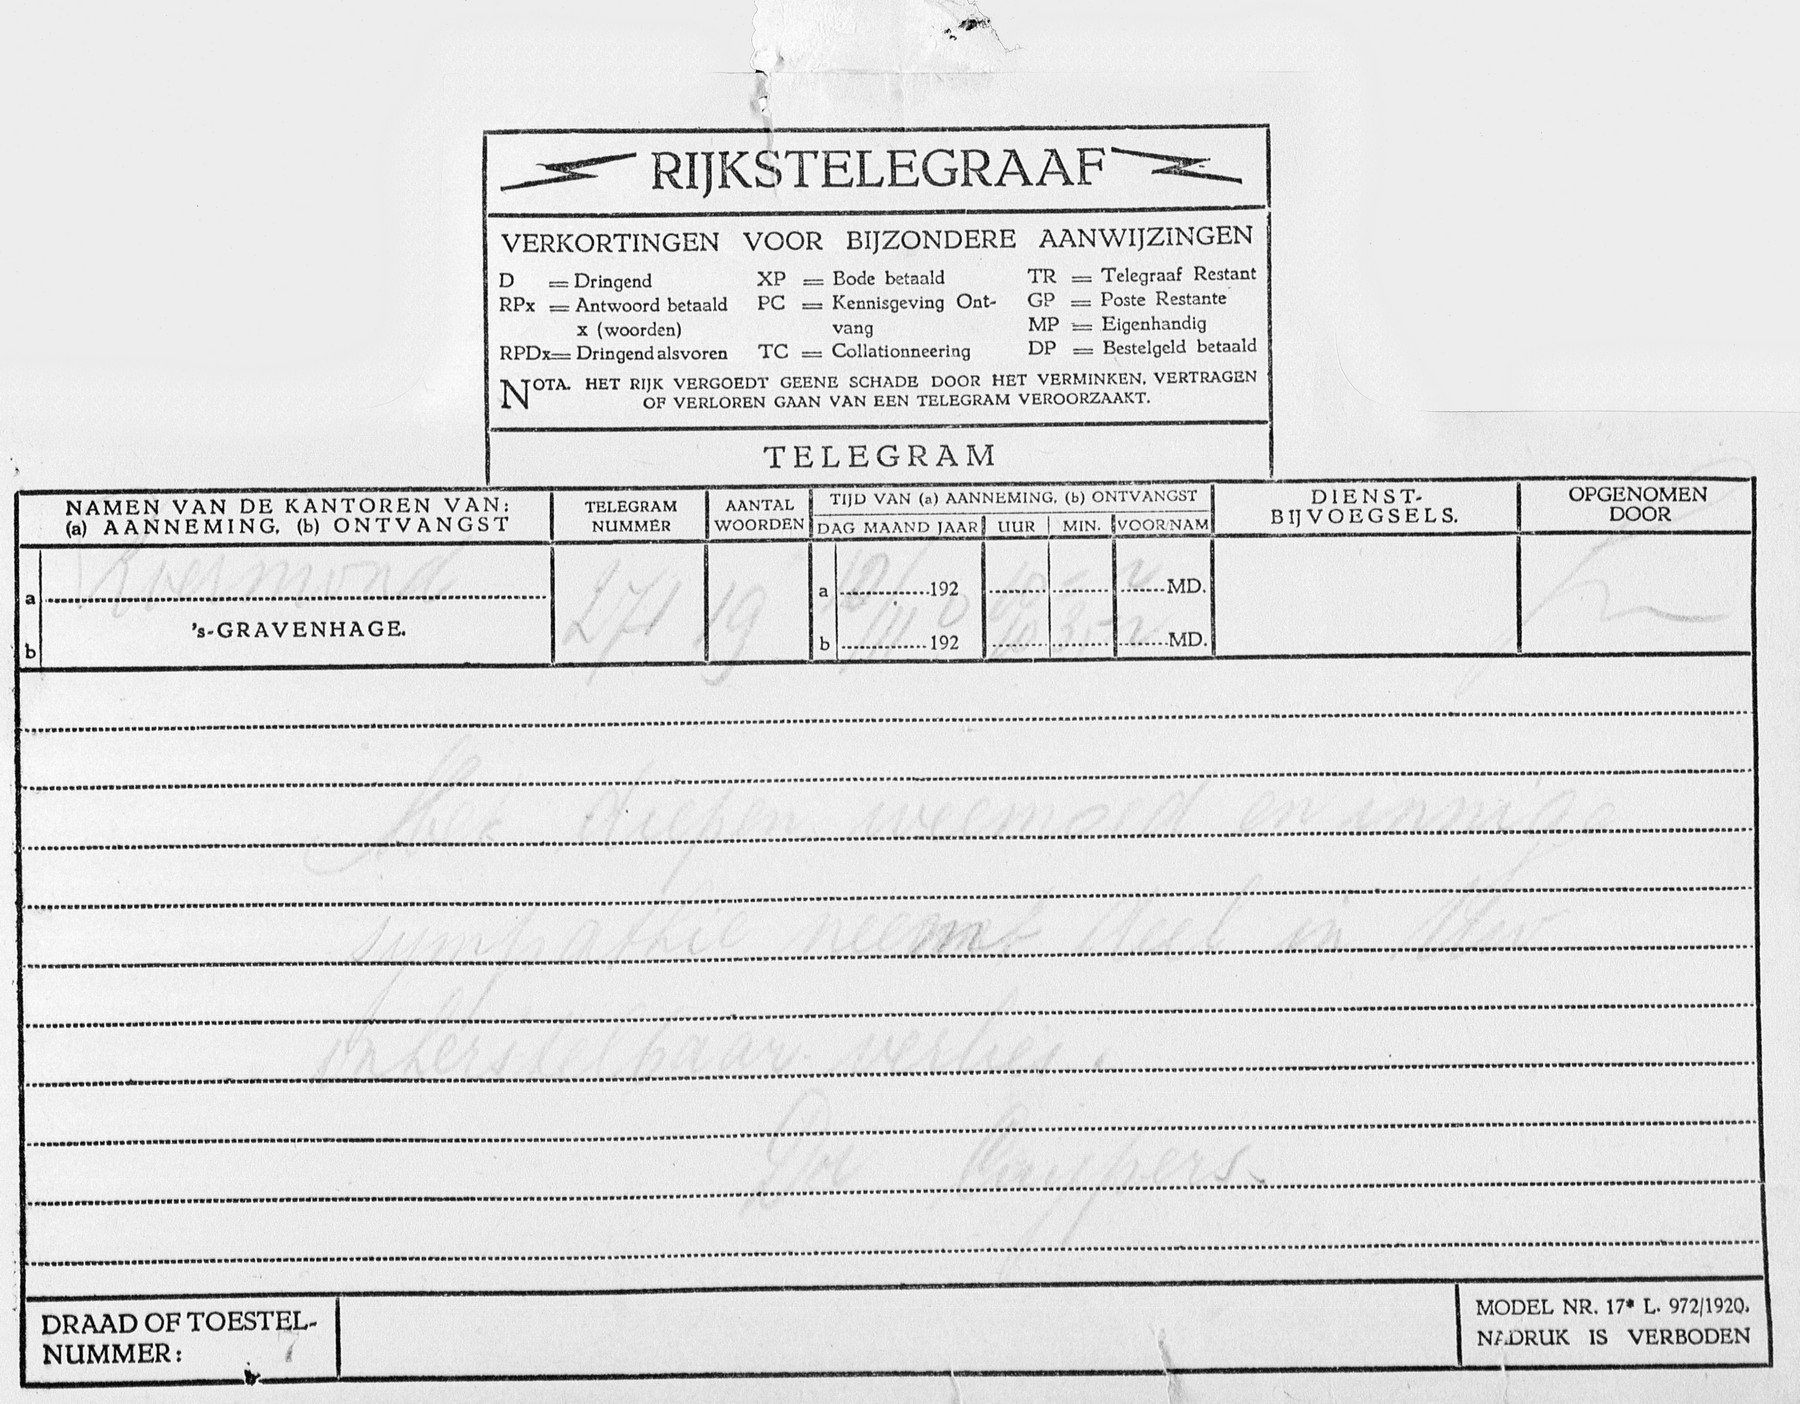 RIJKSTELEGRAAF
VERKORTINGEN VOOR BIJZONDERE AANWIJZINGEN
D = Dringend
RPx = Antwoord betaald
x (woorden)
RPDx = Dringend alsvoren
XP = Bode betaald
PC = Kennisgeving Ont-
vang
TC = Collationneering
TR = Telegraaf Restant
GP = Poste Restante
MP = Eigenhandig
DP = Bestelgeld betaald
NOTA. HET RIJK VERGOEDT GEENE SCHADE DOOR HET VERMINKEN, VERTRAGEN
OF VERLOREN GAAN VAN EEN TELEGRAM VEROORZAAKT.
TELEGRAM
NAMEN VAN DE KANTOREN VAN:
(a) AANNEMING, (b) ONTVANGST
TELEGRAM
NUMMER
AANTAL
WOORDEN
TIJD VAN (a) AANNEMING, (b) ONTVANGST
DAG MAAND JAAR UUR MIN. VOOR/NAM
DIENST-
BIJVOEGSELS.
OPGENOMEN
DOOR
a Roermond
271 19
a 192 MD.
b 's-GRAVENHAGE.
b 192 MD.
Met diepen weemoed en innige
sympathie neemt deel in Uw
onherstelbaar verlies.
Dr Cuypers
DRAAD OF TOESTEL-
NUMMER: 7
MODEL NR. 17* L. 972/1920.
NADRUK IS VERBODEN